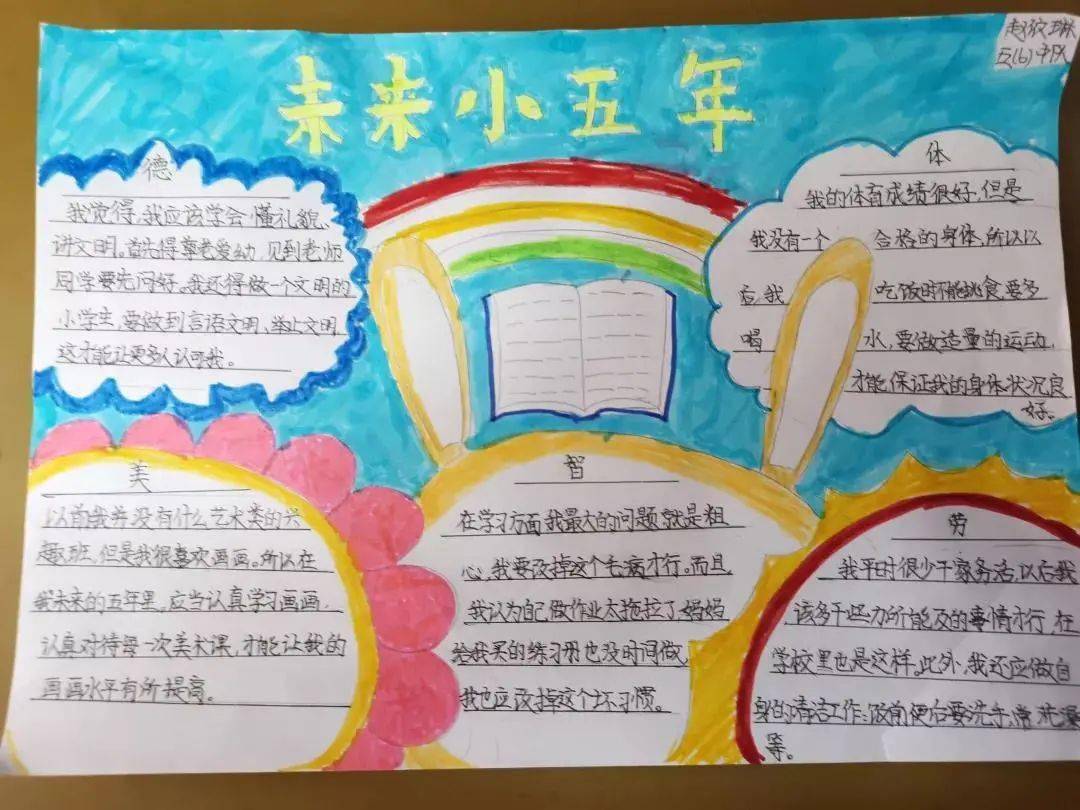 赵玟琳
五(6)中队
未来小五年
德
我觉得,我应该学会懂礼貌、
讲文明。首先得尊老爱幼,见到老师
同学要先问好。我还得做一个文明的
小学生,要做到言语文明、举止文明,
这才能让更多人认可我。
体
我的体育成绩很好,但是
我没有一个合格的身体,所以以
后,我吃饭时不能挑食,要多
喝水,要做适量的运动,
才能保证我的身体状况良
好。
美
以前我并没有什么艺术类的兴
趣班,但是我很喜欢画画。所以在
我未来的五年里,应当认真学习画画,
认真对待每一次美术课,才能让我的
画画水平有所提高。
智
在学习方面我最大的问题就是粗
心,我要改掉这个毛病才行。而且
我认为自己做作业太拖拉了,妈妈
给我买的练习册也没时间做,
我也应该掉这个坏习惯。
劳
我平时很少干家务活,以后我
该多干些力所能及的事情才行,在
学校里也是这样。此外,我还应做自
身的清洁工作:饭前便后要洗手,常洗澡
等。